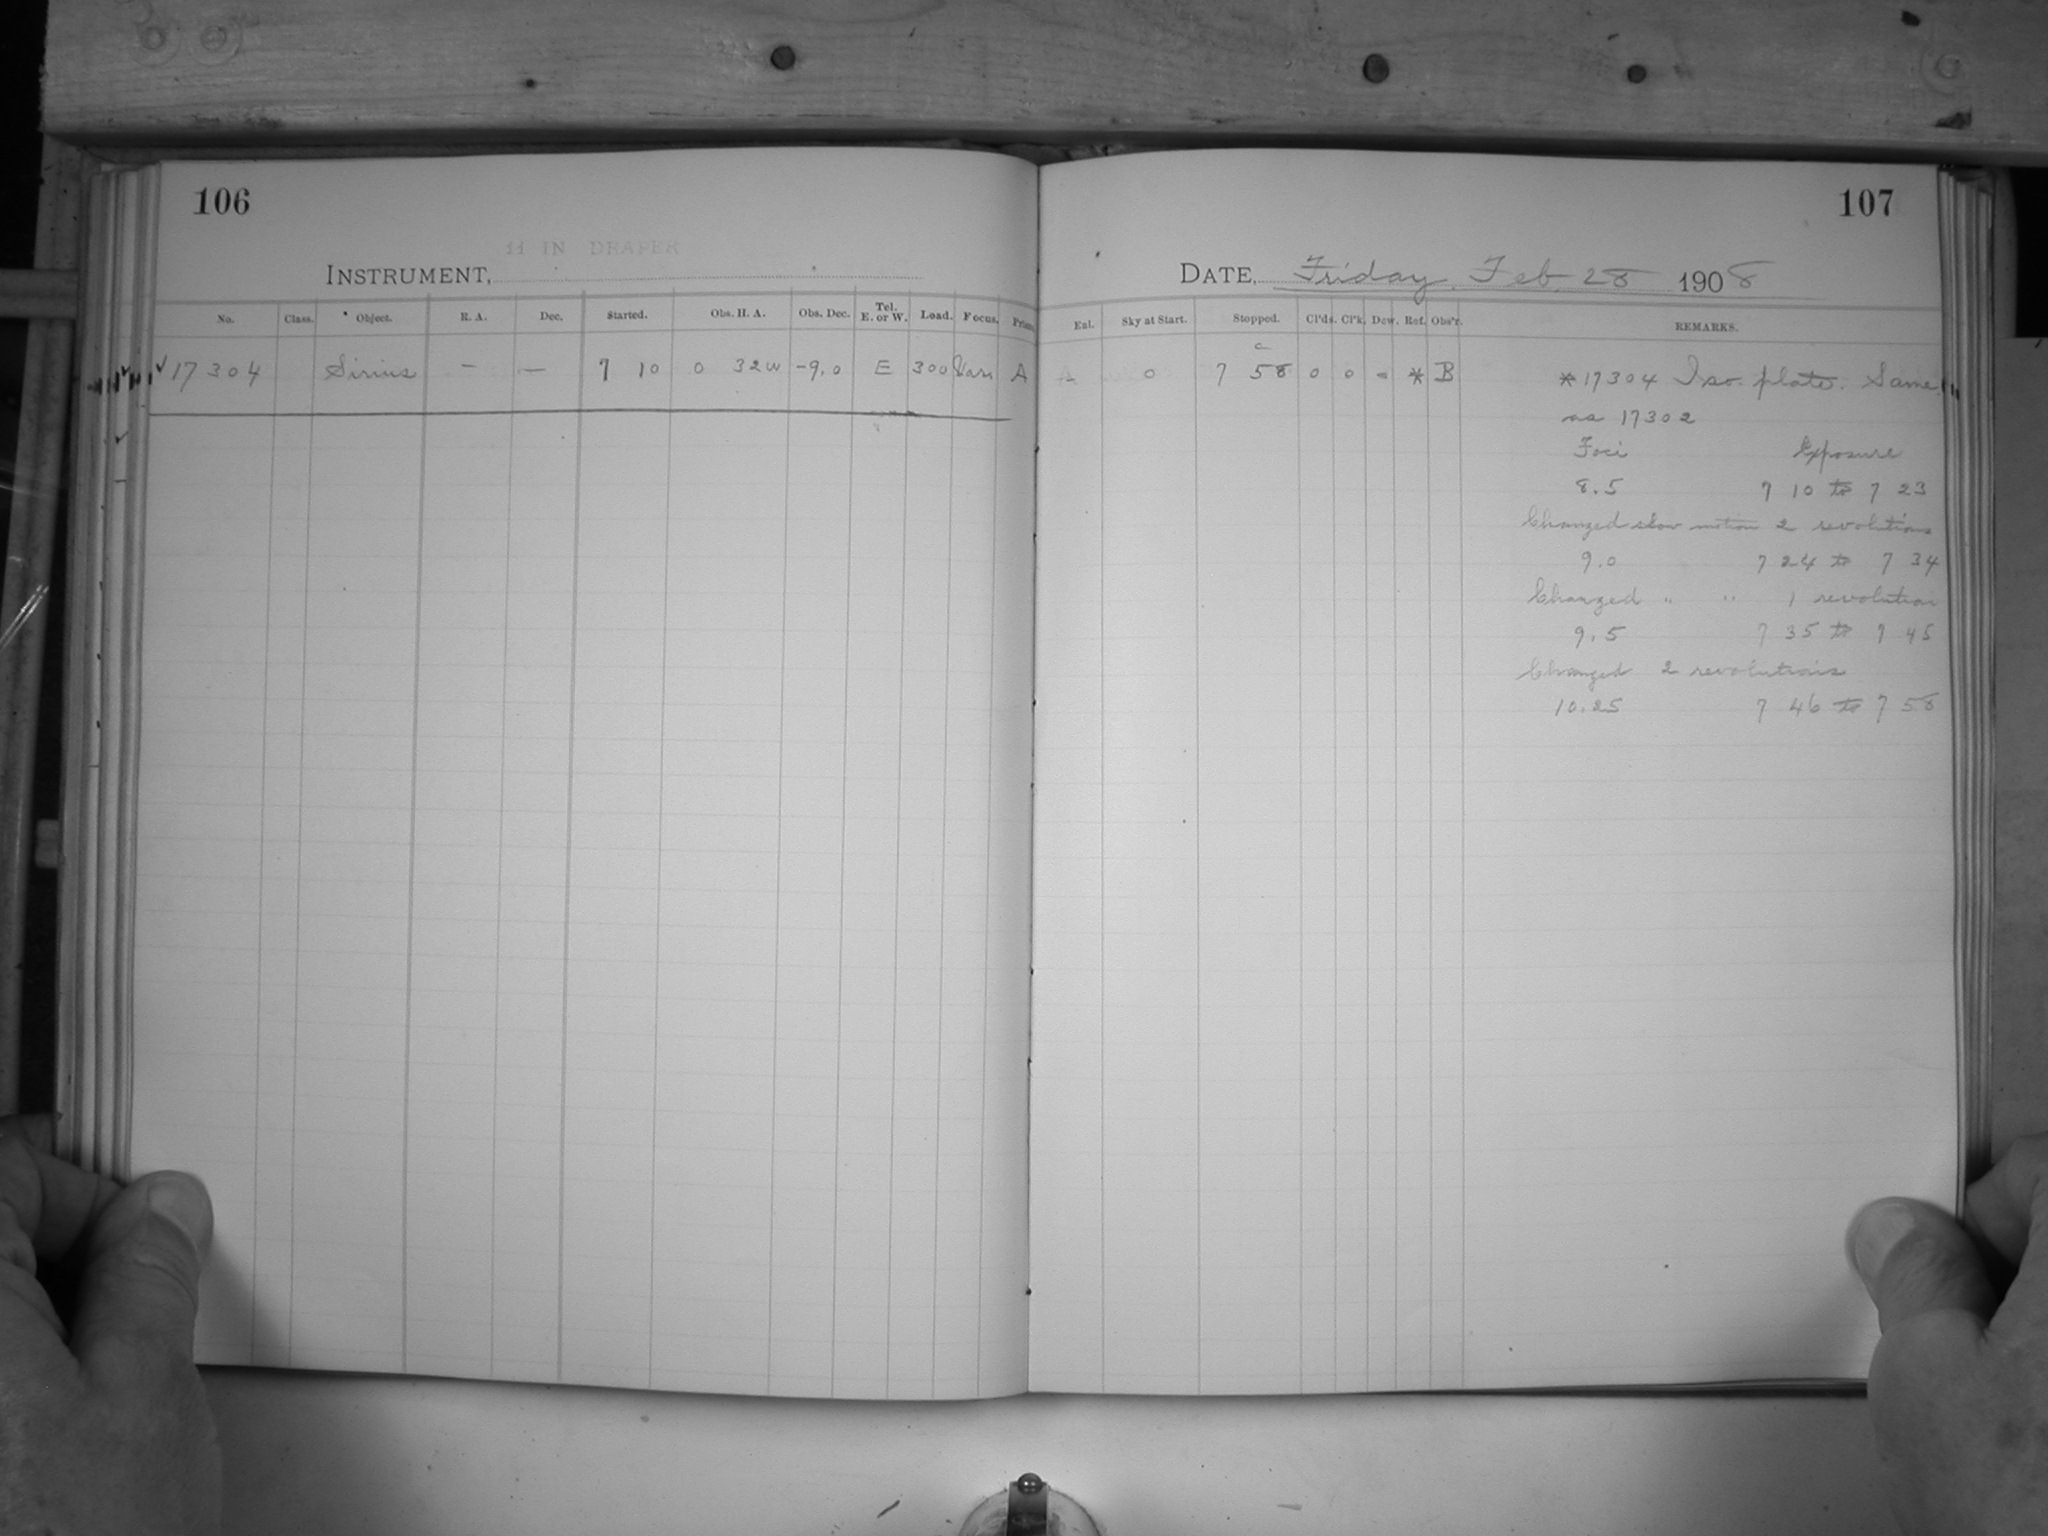 106
11 IN DRAPER
INSTRUMENT,
No. Class. Object. R. A. Dec. Started. Obs. H. A. Obs. Dec. Tel. E. or W. Load. Focus.
✓17304 Sirius — — 7 10 0 32W -9.0 E 300 Vari A
107
DATE, Friday, Feb. 28 1908
Enl. Sky at Start. Stopped. Cl'ds. Cl'k. Dew. Ref. Obs'r. REMARKS.
A 0 7 58 0 0 * B
c
*17304 Iso. plate. Same
as 17302
Foci Exposure
8.5 7 10 to 7 23
Changed slow motion 2 revolutions
9.0 7 24 to 7 34
Changed " " 1 revolution
9.5 7 35 to 7 45
Changed 2 revolutions
10.25 7 46 to 7 58